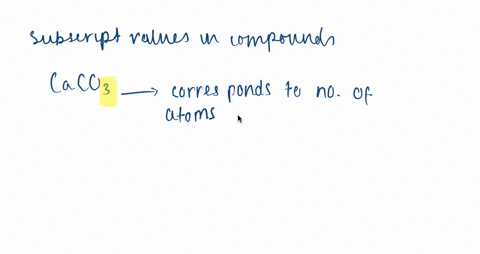 subscript values in compounds
CaCO₃ → corresponds to no. of
atoms